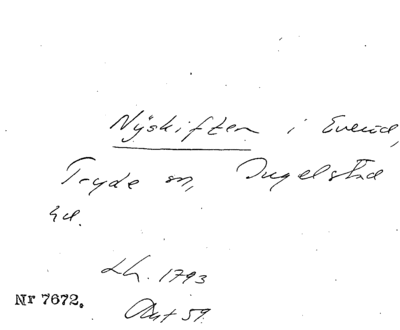 Nyskiften i Everöd,
Tryde sn, Ingelstad
hd.
Lh. 1793
Nr 7672.
Akt 59.